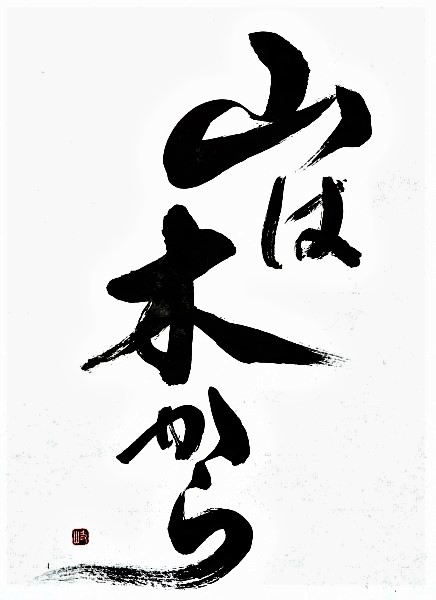 山は
木から